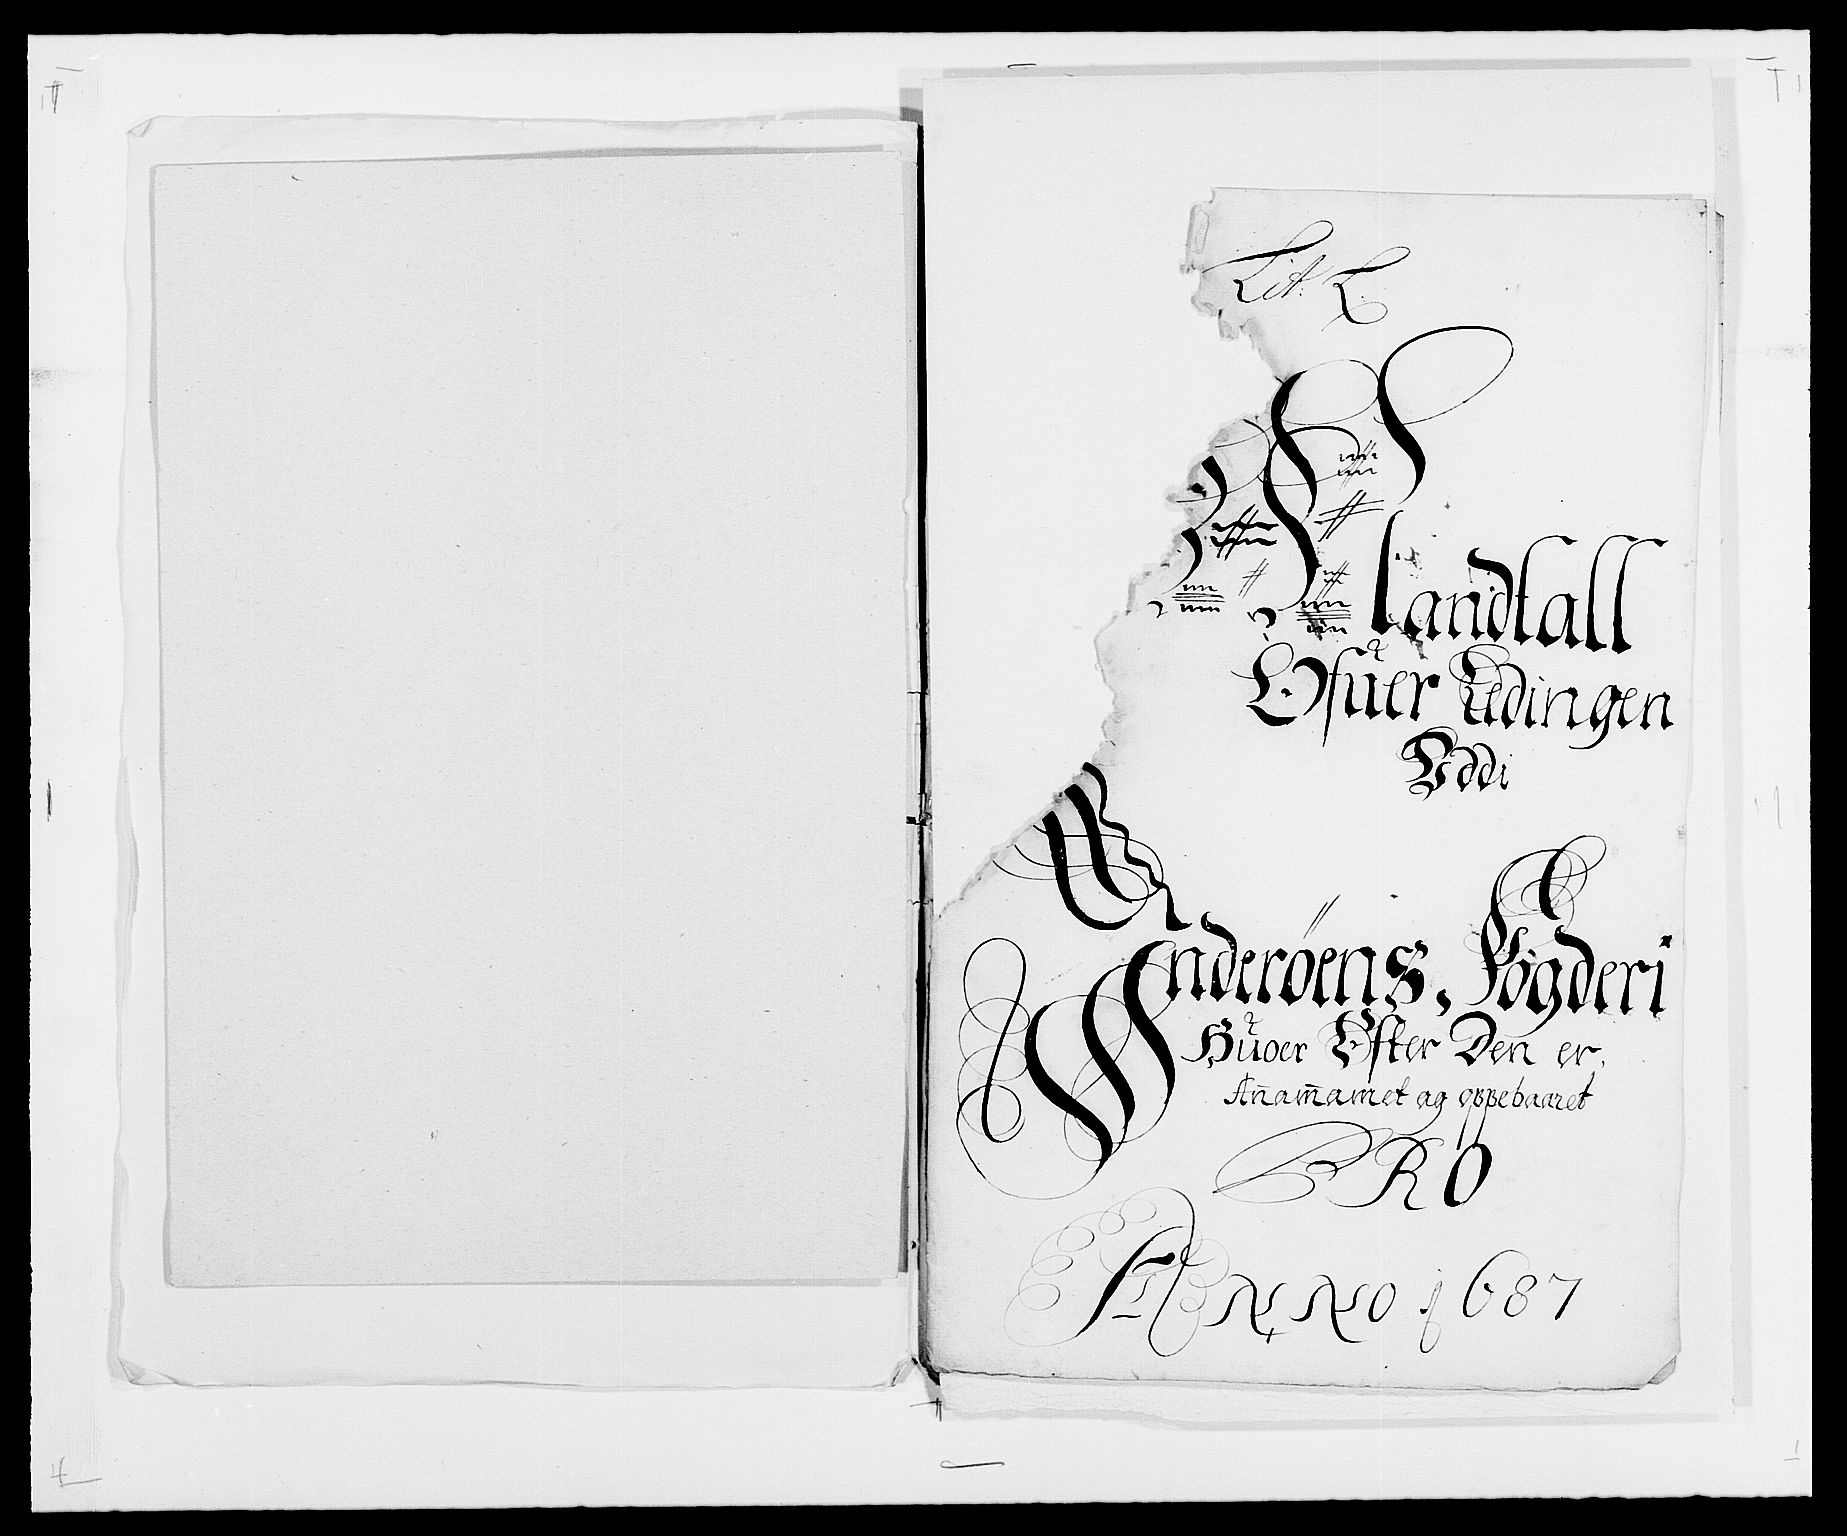 Lit. L.
Mandtall
Ofuer Tedingen
Uddi
Inderøens, Fögderi
Huor Efter Den er
Anammamet og oppebaaret
PRO
ANNO 1687